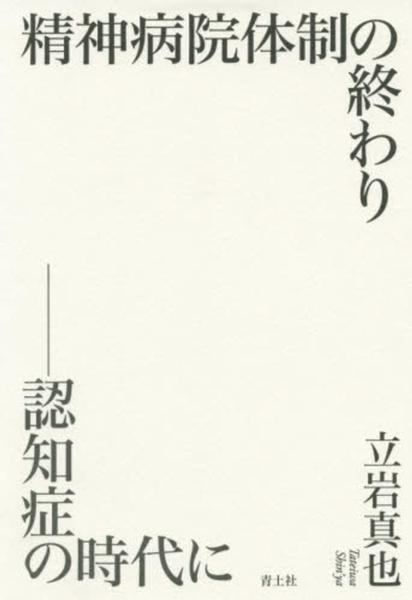 精神病院体制の終わり
──認知症の時代に
立岩真也
Tateiwa
Shin'ya
青土社